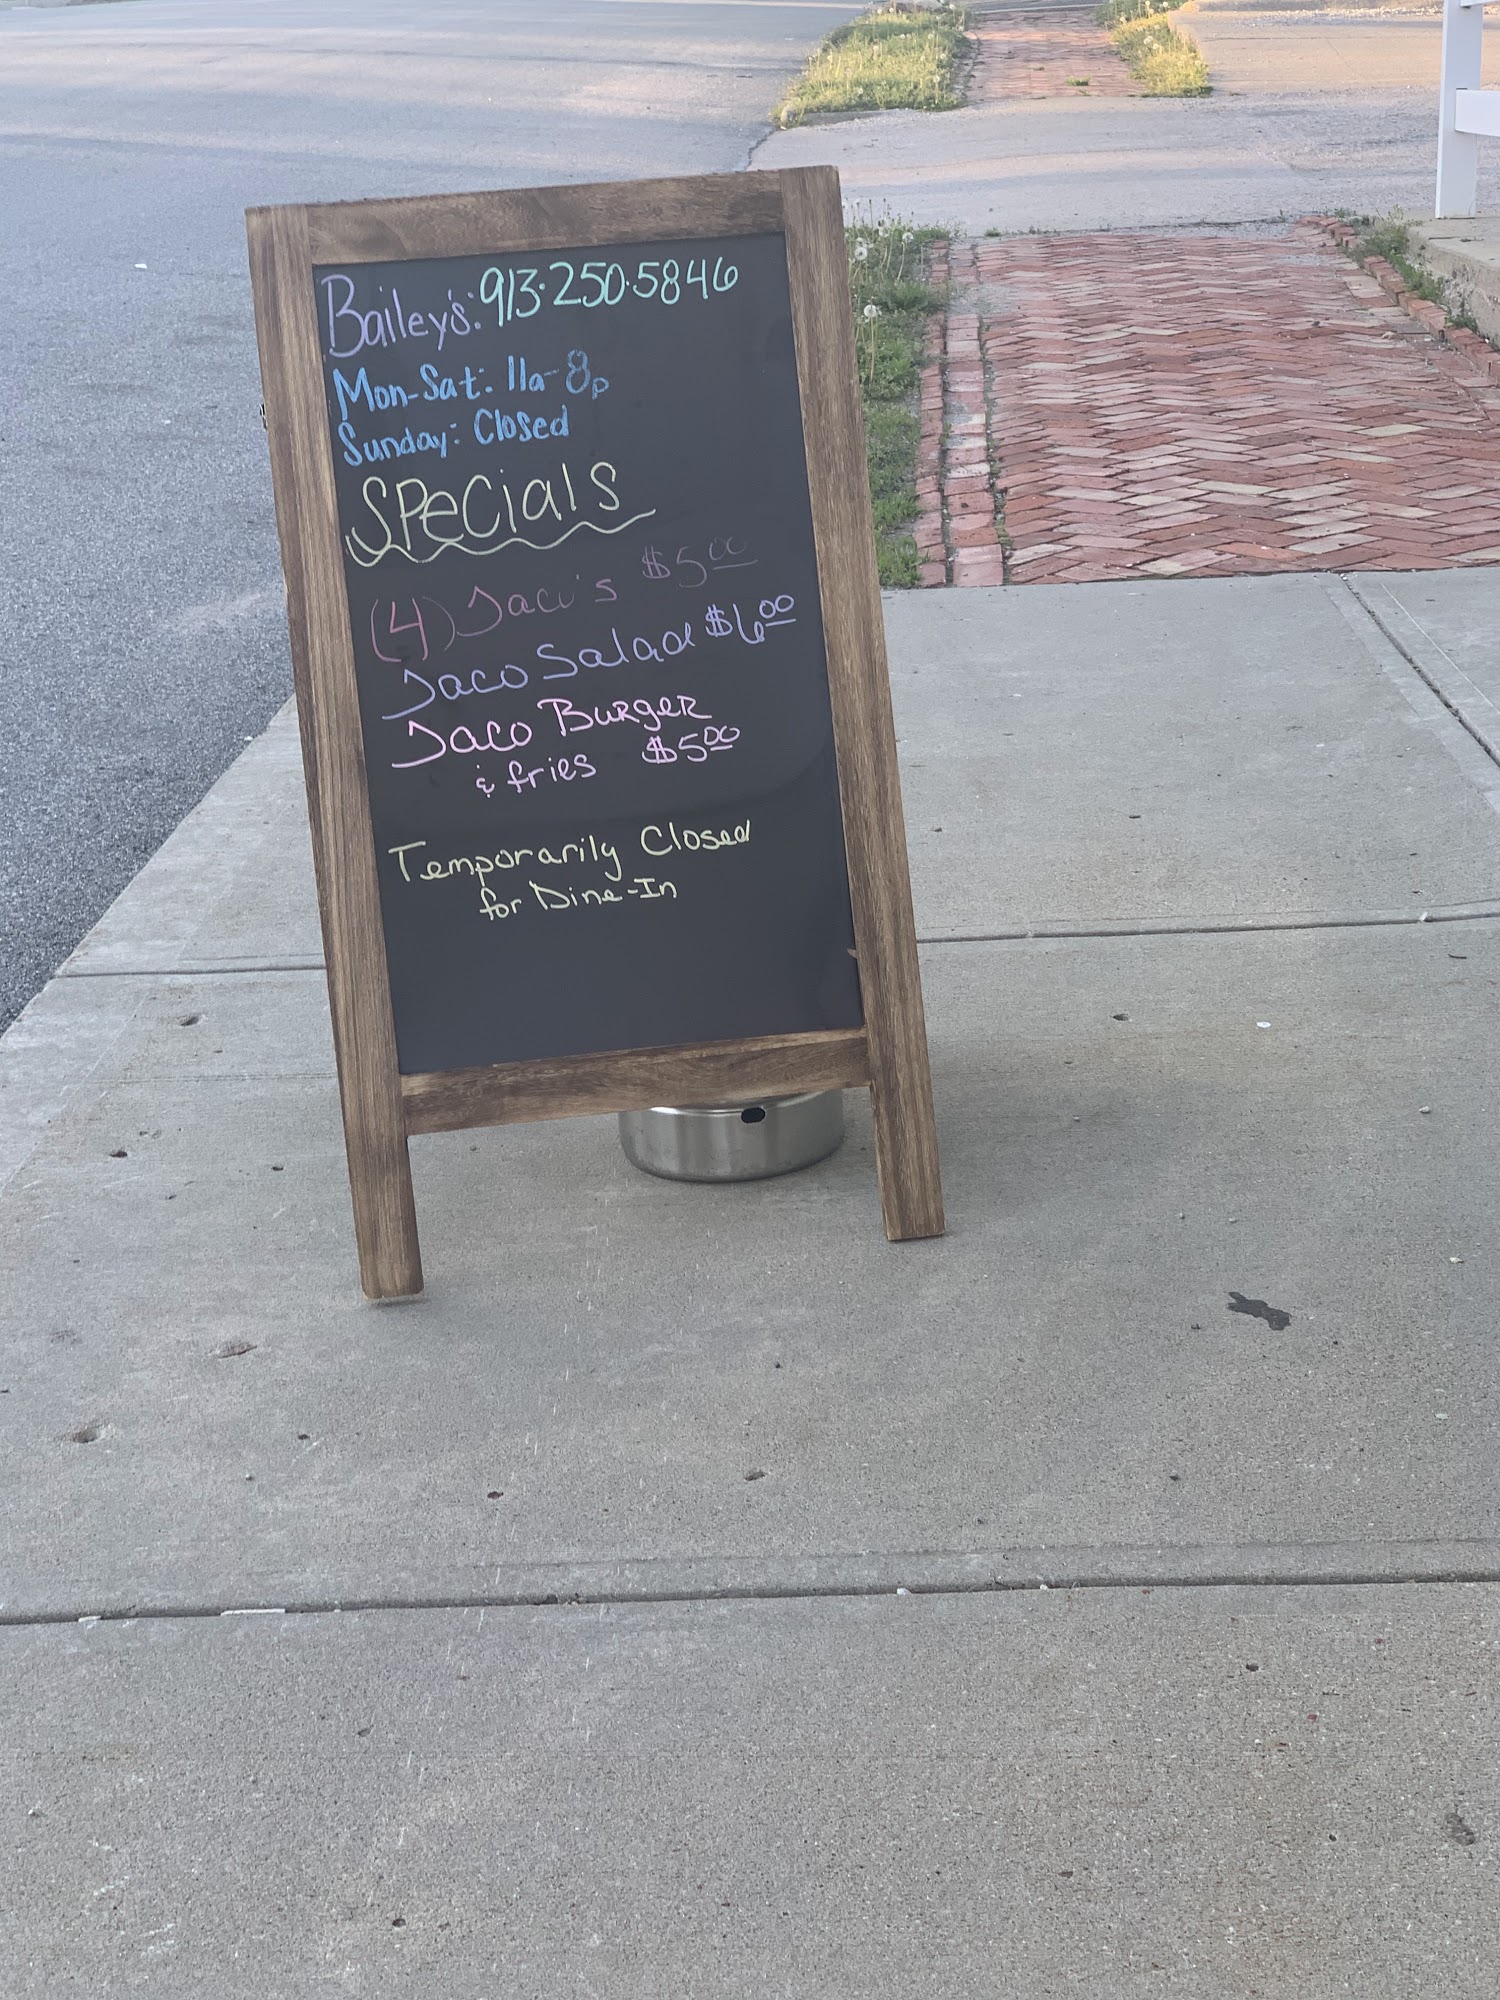 Bailey's: 913·250·5846
Mon-Sat: 11a-8p
Sunday: Closed
Specials
(4) Taco's $5.00
Taco Salad $6.00
Taco Burger
& fries $5.00
Temporarily Closed
for Dine-In